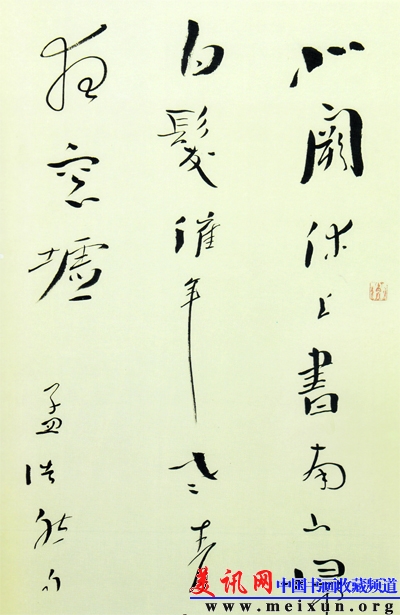 北闕休上書南山歸
白髮催年老青
夜窗墟
孟浩然
美讯网 中国书画收藏频道
www.meixun.org